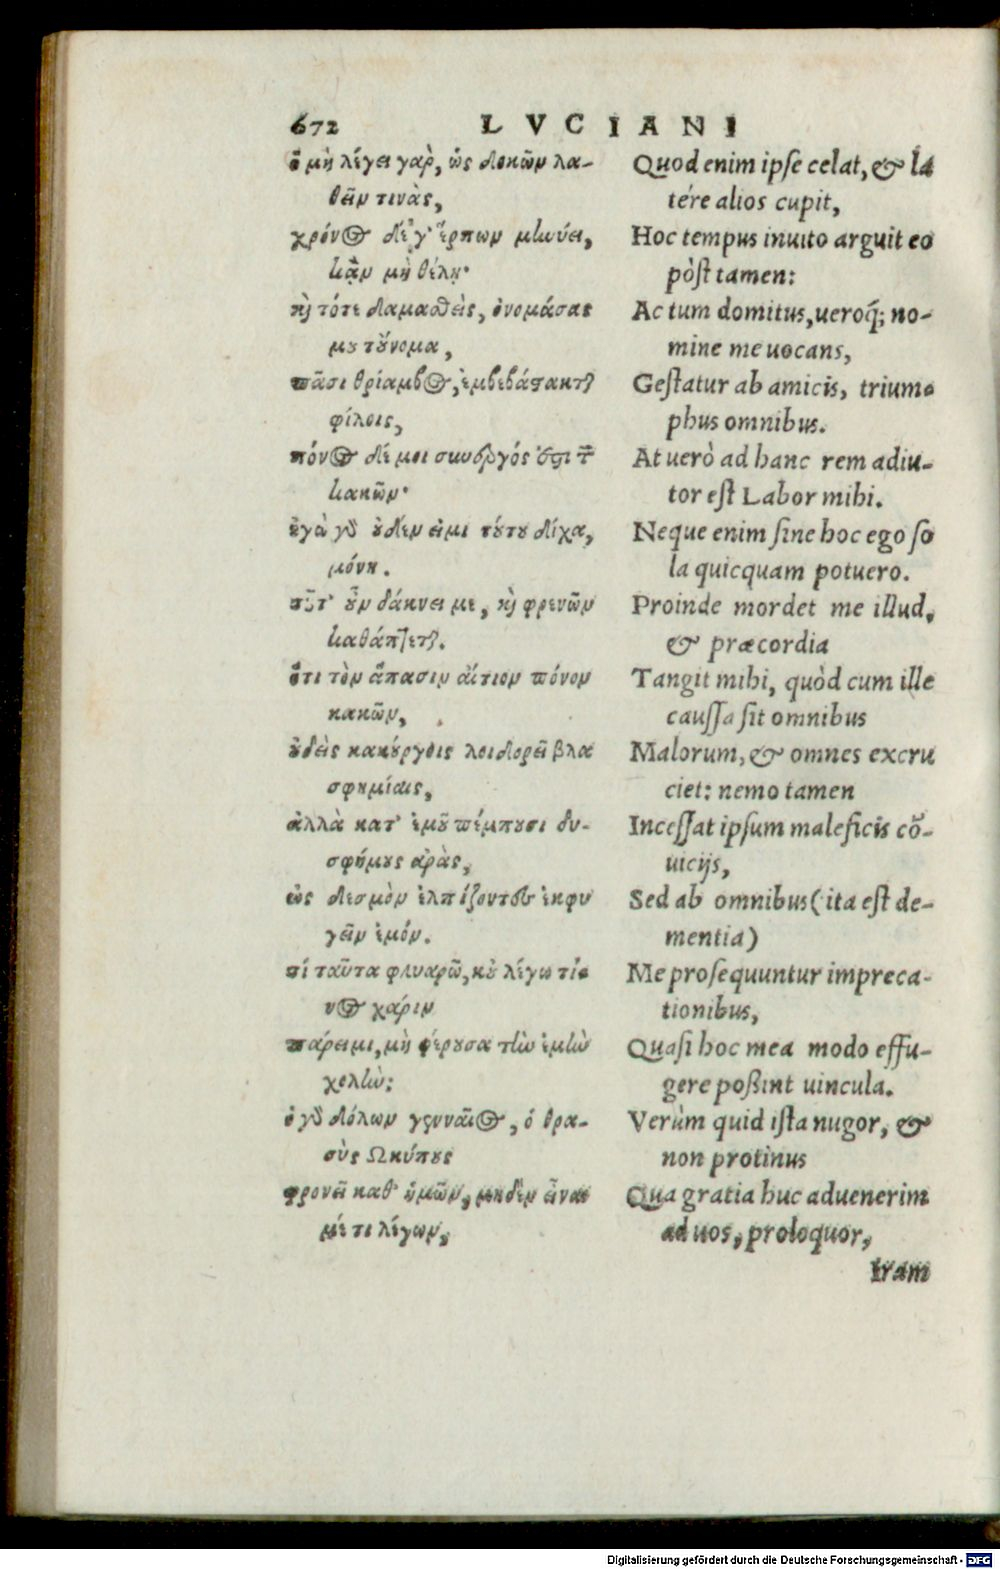 672 LVCIANI
ὃ μὴ λέγει γαρ, ὡς δοκῶν λα-
θεῖν τινὰς,
χρόνος δέ γ' ἕρπων μηνύει,
κἂν μὴ θέλῃ·
καὶ τότε δαμασθεὶς, ὀνομάσας
μου τοὔνομα,
πᾶσι θρίαμβος, ἐμβεβάστακται
φίλοις,
πόνος δέ μοι συνεργός ἐστι τῶν
κακῶν·
ἐγὼ γὰρ οὐδέν εἰμι τούτου δίχα,
μόνη.
τοῦτ' οὖν δάκνει με, καὶ φρενῶν
καθάπτεται.
ὅτι τὸν ἅπασιν αἴτιον πόνον
κακῶν,
οὐδεὶς κακούργοις λοιδορεῖ βλα
σφημίαις,
ἀλλὰ κατ' ἐμοῦ πέμπουσι δυ-
σφήμους ἀρὰς,
ὡς δεσμὸν ἐλπίζοντες ἐκφυ
γεῖν ἐμόν.
τί ταῦτα φλυαρῶ, κοὐ λέγω τί-
νος χάριν
πάρειμι, μὴ φέρουσα τὴν ἐμὴν
χολήν;
ὁ γὰρ δόλων γεννᾶιος, ὁ θρα-
σὺς Ωκύπους
φρονεῖ καθ' ἡμῶν, μηδὲν εἶναί
μέ τι λέγων,
Quod enim ipse celat, & la
tére alios cupit,
Hoc tempus inuito arguit eo
pòst tamen:
Ac tum domitus, ueroq́; no-
mine me uocans,
Gestatur ab amicis, trium-
phus omnibus.
At uerò ad hanc rem adiu-
tor est Labor mihi.
Neque enim sine hoc ego so
la quicquam potuero.
Proinde mordet me illud,
& præcordia
Tangit mihi, quòd cum ille
caussa sit omnibus
Malorum, & omnes excru
ciet: nemo tamen
Incessat ipsum maleficis cõ-
uicijs,
Sed ab omnibus (ita est de-
mentia)
Me prosequuntur impreca-
tionibus,
Quasi hoc mea modo effu-
gere poßint uincula.
Verùm quid ista nugor, &
non protinus
Qua gratia huc aduenerim
ad uos, proloquor,
Iram
Digitalisierung gefördert durch die Deutsche Forschungsgemeinschaft - DFG